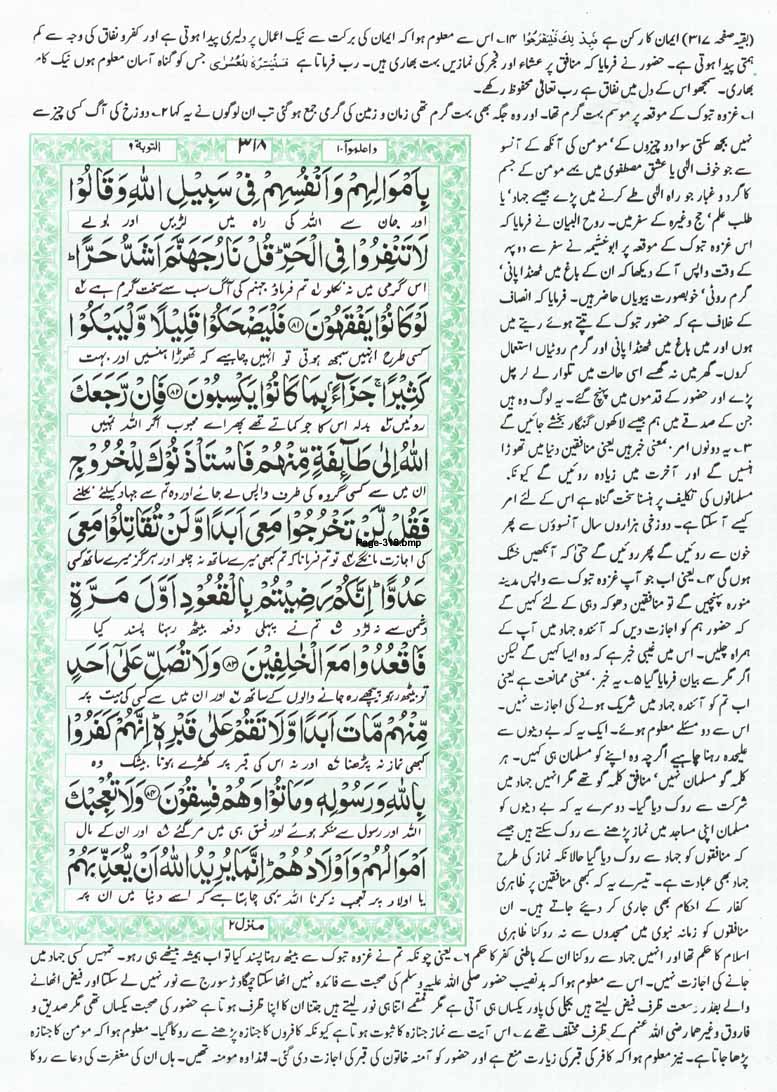 (بقیہ صفحہ ۳۱۷) ایمان کا رکن ہے فَبِذٰلِكَ فَلْيَفْرَحُوْا ۱۴۔ اس سے معلوم ہوا کہ ایمان کی برکت سے نیک اعمال پر دلیری پیدا ہوتی ہے اور کفر و نفاق کی وجہ سے کم
ہمتی پیدا ہوتی ہے۔ حضور نے فرمایا کہ منافق پر عشاء اور فجر کی نمازیں بہت بھاری ہیں۔ رب فرماتا ہے فَسَنُيَسِّرُهٗ لِلْعُسْرٰى جس کو گناہ آسان معلوم ہوں نیک کام
بھاری۔ سمجھو اس کے دل میں نفاق ہے رب تعالٰی محفوظ رکھے۔
۱۔ غزوہ تبوک کے موقعہ پر موسم بہت گرم تھا۔ اور وہ جگہ بھی بہت گرم تھی زمان و زمین کی گرمی جمع ہو گئی تب ان لوگوں نے یہ کہا ۲۔ دوزخ کی آگ کسی چیز سے
نہیں بجھ سکتی سوا دو چیزوں کے‘ مومن کی آنکھ کے آنسو
سے جو خوف الٰہی یا عشق مصطفوی میں بہے مومن کے جسم
کا گرد و غبار جو راہ الٰہی طے کرنے میں پڑے جیسے جہاد‘ یا
طلب علم‘ حج وغیرہ کے سفر میں۔ روح البیان نے فرمایا کہ
اس غزوہ تبوک کے موقعہ پر ابو خیثمہ نے سفر سے دوپہر
کے وقت واپس آ کے دیکھا کہ ان کے باغ میں ٹھنڈا پانی‘
گرم روٹی‘ خوبصورت بیویاں حاضر ہیں۔ فرمایا کہ انصاف
کے خلاف ہے کہ حضور تبوک کے تپتے ہوئے ریتے میں
ہوں اور میں باغ میں ٹھنڈا پانی اور گرم روٹیاں استعمال
کروں۔ گھر میں نہ گھسے اسی حالت میں تلوار لے کر چل
پڑے اور حضور کے قدموں میں پہنچ گئے۔ یہ لوگ وہ ہیں
جن کے صدقے میں ہم جیسے لاکھوں گنہگار بخشے جائیں گے
۳۔ یہ دونوں امر۔ معنی خبر ہیں یعنی منافقین دنیا میں تھوڑا
ہنسیں گے اور آخرت میں زیادہ روئیں گے کیونکہ
مسلمانوں کی تکلیف پر ہنسنا سخت گناہ ہے اس کے لئے امر
کیسے آ سکتا ہے۔ دوزخی ہزاروں سال آنسوؤں سے پھر
خون سے روئیں گے پھر روئیں گے حتٰی کہ آنکھیں خشک
ہوں گی ۴۔ یعنی اب جو آپ غزوہ تبوک سے واپس مدینہ
منورہ پہنچیں گے تو منافقین دھوکہ دہی کے لئے کہیں گے
کہ حضور ہم کو اجازت دیں کہ آئندہ جہاد میں آپ کے
ہمراہ چلیں۔ اس میں غیبی خبر ہے کہ وہ ایسا کہیں گے لیکن
اگر مگر سے بیان فرمایا گیا ۵۔ یہ خبر۔ معنی ممانعت ہے یعنی
اب تم کو آئندہ جہاد میں شریک ہونے کی اجازت نہیں۔
اس سے دو مسئلے معلوم ہوئے۔ ایک یہ کہ بے دینوں سے
علیحدہ رہنا چاہیے اگرچہ وہ اپنے کو مسلمان ہی کہیں۔ ہر
کلمہ گو مسلمان نہیں‘ منافق کلمہ گو تھے مگر انہیں جہاد میں
شرکت سے روک دیا گیا۔ دوسرے یہ کہ بے دینوں کو
مسلمان اپنی مساجد میں نماز پڑھنے سے روک سکتے ہیں جیسے
کہ منافقوں کو جہاد سے روک دیا گیا حالانکہ نماز کی طرح
جہاد بھی عبادت ہے۔ تیسرے یہ کہ کبھی منافقین پر ظاہری
کفار کے احکام بھی جاری کر دیئے جاتے ہیں۔ ان
منافقوں کو زمانہ نبوی میں مسجدوں سے نہ روکنا ظاہری
التوبة ۹ ۳۱۸ واعلموا ۱۰
بِاَمْوَالِهِمْ وَاَنْفُسِهِمْ فِيْ سَبِيْلِ اللّٰهِ وَقَالُوْا
اور جان سے اللہ کی راہ میں لڑیں اور بولے
لَا تَنْفِرُوْا فِي الْحَرِّ ؕ قُلْ نَارُ جَهَنَّمَ اَشَدُّ حَرًّا ؕ
اس گرمی میں نہ نکلو ۱ تم فرماؤ جہنم کی آگ سب سے سخت گرم ہے ۲
لَوْ كَانُوْا يَفْقَهُوْنَ ۸۱ فَلْيَضْحَكُوْا قَلِيْلًا وَّلْيَبْكُوْا
کسی طرح انہیں سمجھ ہوتی تو انہیں چاہیے کہ تھوڑا ہنسیں اور بہت
كَثِيْرًا ۚ جَزَآءًۢ بِمَا كَانُوْا يَكْسِبُوْنَ ۸۲ فَاِنْ رَّجَعَكَ
روئیں ۳ بدلہ اس کا جو کماتے تھے پھر اے محبوب اگر اللہ تمہیں
اللّٰهُ اِلٰى طَآئِفَةٍ مِّنْهُمْ فَاسْتَاْذَنُوْكَ لِلْخُرُوْجِ
ان میں سے کسی گروہ کی طرف واپس لے جائے اور وہ تم سے جہاد کیلئے نکلنے
فَقُلْ لَّنْ تَخْرُجُوْا مَعِيَ اَبَدًا وَّلَنْ تُقَاتِلُوْا مَعِيَ
Page-318.bmp
کی اجازت مانگے ۴ تو تم فرمانا کہ تم کبھی میرے ساتھ نہ چلو اور ہرگز میرے ساتھ کسی
عَدُوًّا ؕ اِنَّكُمْ رَضِيْتُمْ بِالْقُعُوْدِ اَوَّلَ مَرَّةٍ
دشمن سے نہ لڑو ۵ تم نے پہلی دفعہ بیٹھ رہنا پسند کیا
فَاقْعُدُوْا مَعَ الْخٰلِفِيْنَ ۸۳ وَلَا تُصَلِّ عَلٰٓى اَحَدٍ
تو بیٹھ رہو پیچھے رہ جانے والوں کے ساتھ ۶ اور ان میں سے کسی کی میت پر
مِّنْهُمْ مَّاتَ اَبَدًا وَّلَا تَقُمْ عَلٰى قَبْرِهٖ ؕ اِنَّهُمْ كَفَرُوْا
کبھی نماز نہ پڑھنا ۷ اور نہ اس کی قبر پر کھڑے ہونا بیشک وہ
بِاللّٰهِ وَرَسُوْلِهٖ وَمَاتُوْا وَهُمْ فٰسِقُوْنَ ۸۴ وَلَا تُعْجِبْكَ
اللہ اور رسول سے منکر ہوئے اور فسق ہی میں مر گئے ۸ اور ان کے مال
اَمْوَالُهُمْ وَاَوْلَادُهُمْ ؕ اِنَّمَا يُرِيْدُ اللّٰهُ اَنْ يُّعَذِّبَهُمْ
یا اولاد پر تعجب نہ کرنا اللہ یہی چاہتا ہے کہ اسے دنیا میں ان پر
منزل ۲
اسلام کا حکم تھا اور انہیں جہاد سے روکنا ان کے باطنی کفر کا حکم ۶۔ یعنی چونکہ تم نے غزوہ تبوک سے بیٹھ رہنا پسند کیا تو اب ہمیشہ بیٹھے ہی رہو۔ تمہیں کسی جہاد میں
جانے کی اجازت نہیں۔ اس سے معلوم ہوا کہ بد نصیب حضور صلی اللہ علیہ وسلم کی صحبت سے فائدہ نہیں اٹھا سکتا چمگادڑ سورج سے نور نہیں لے سکتا اور فیض اٹھانے
والے بقدر وسعت ظرف فیض لیتے ہیں بجلی کی پاور یکساں ہی آتی ہے مگر قمقمے اتنا ہی نور لیتے ہیں جتنا ان کا اپنا ظرف ہوتا ہے حضور کی صحبت یکساں تھی مگر صدیق و
فاروق وغیرھما رضی اللہ عنہم کے ظرف مختلف تھے ۷۔ اس آیت سے نماز جنازہ کا ثبوت ہوتا ہے کیونکہ کافروں کا جنازہ پڑھنے سے روکا گیا۔ معلوم ہوا کہ مومن کا جنازہ
پڑھا جاتا ہے۔ نیز معلوم ہوا کہ کافر کی قبر کی زیارت منع ہے اور حضور کو آمنہ خاتون کی قبر کی اجازت دی گئی۔ لہٰذا وہ مومنہ تھیں۔ ہاں ان کی مغفرت کی دعا سے روکا